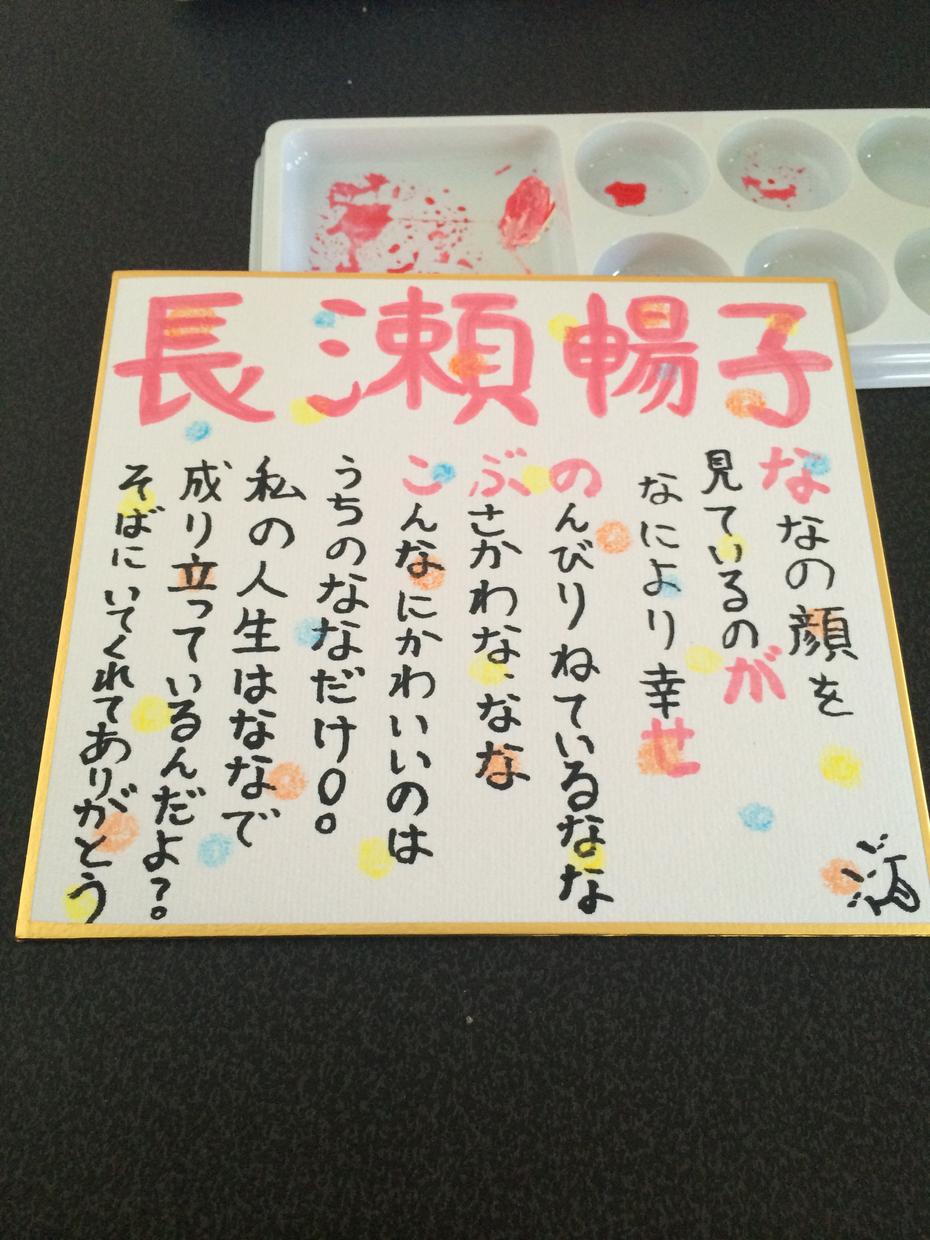 長瀬暢子
ななの顔を
見ているのが
なにより幸せ
のんびりねているなな
ぶさかわな、なな
こんなにかわいいのは
うちのななだけ○。
私の人生はななで
成り立っているんだよ?。
そばにいてくれてありがとう